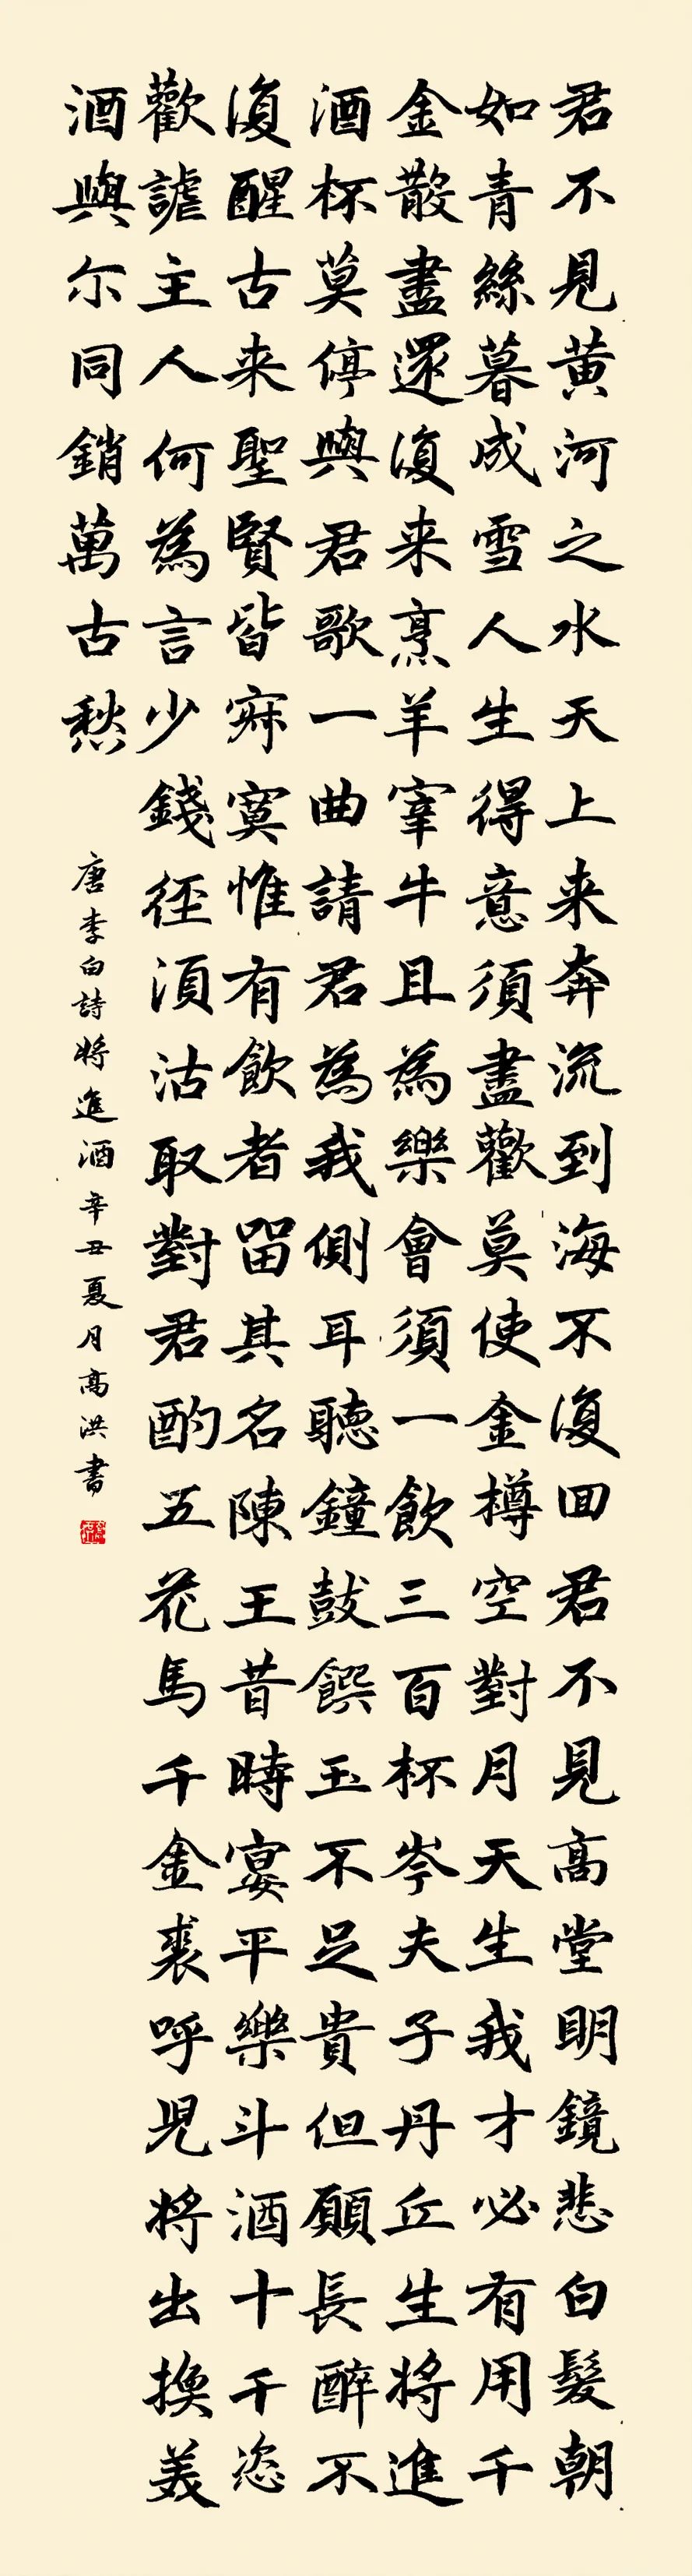 君不見黄河之水天上来奔流到海不復回君不見高堂明鏡悲白髮朝
如青絲暮成雪人生得意須盡歡莫使金樽空對月天生我才必有用千
金散盡還復来烹羊宰牛且為樂會須一飲三百杯岑夫子丹丘生將進
酒杯莫停與君歌一曲請君為我側耳聽鐘鼓饌玉不足貴但願長醉不
復醒古来聖賢皆寂寞惟有飲者留其名陳王昔時宴平樂斗酒十千恣
歡謔主人何為言少錢徑須沽取對君酌五花馬千金裘呼兒將出換美
酒與尔同銷萬古愁
唐李白詩將進酒辛丑夏月高洪書